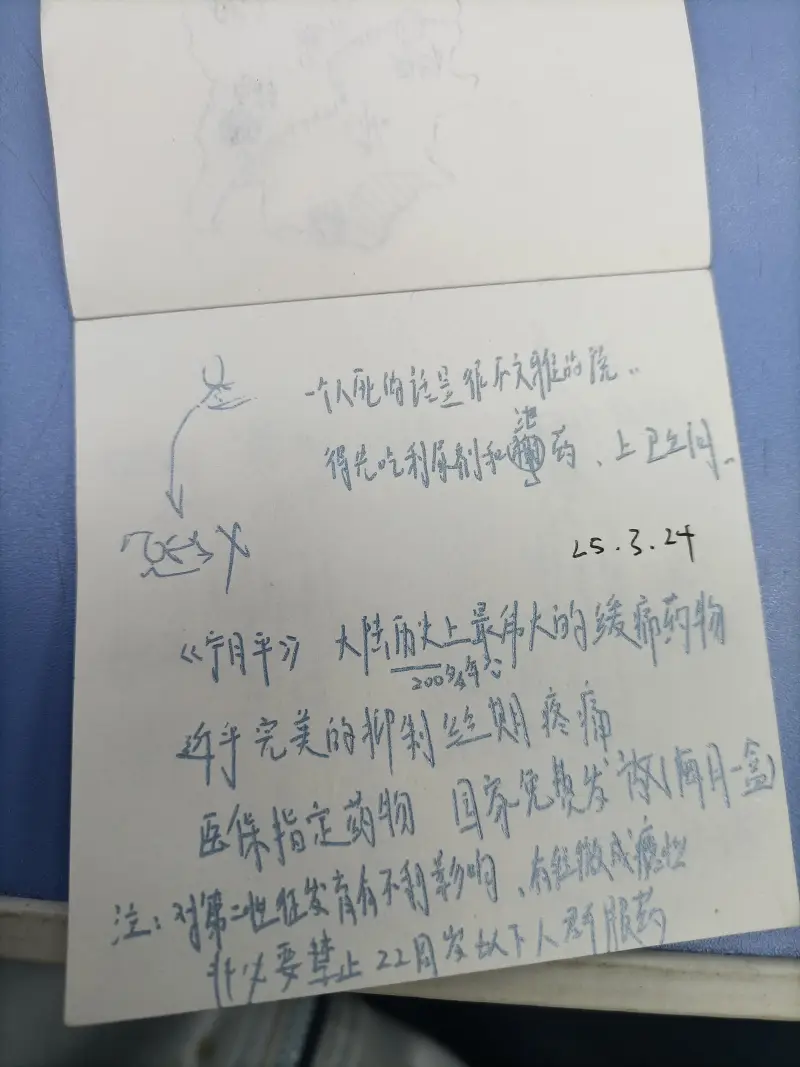 一个人死的话是很不文雅的说..
得先吃利尿剂和泻药、上卫生间.
25.3.24
《宁月平》 大陆历史上最伟大的缓痛药物
200多年
近乎完美的抑制丝期疼痛
医保指定药物 国家免费发放(每月一盒)
注：对第二性征发育有不利影响、有轻微成瘾性
非必要禁止22周岁以下人群服药